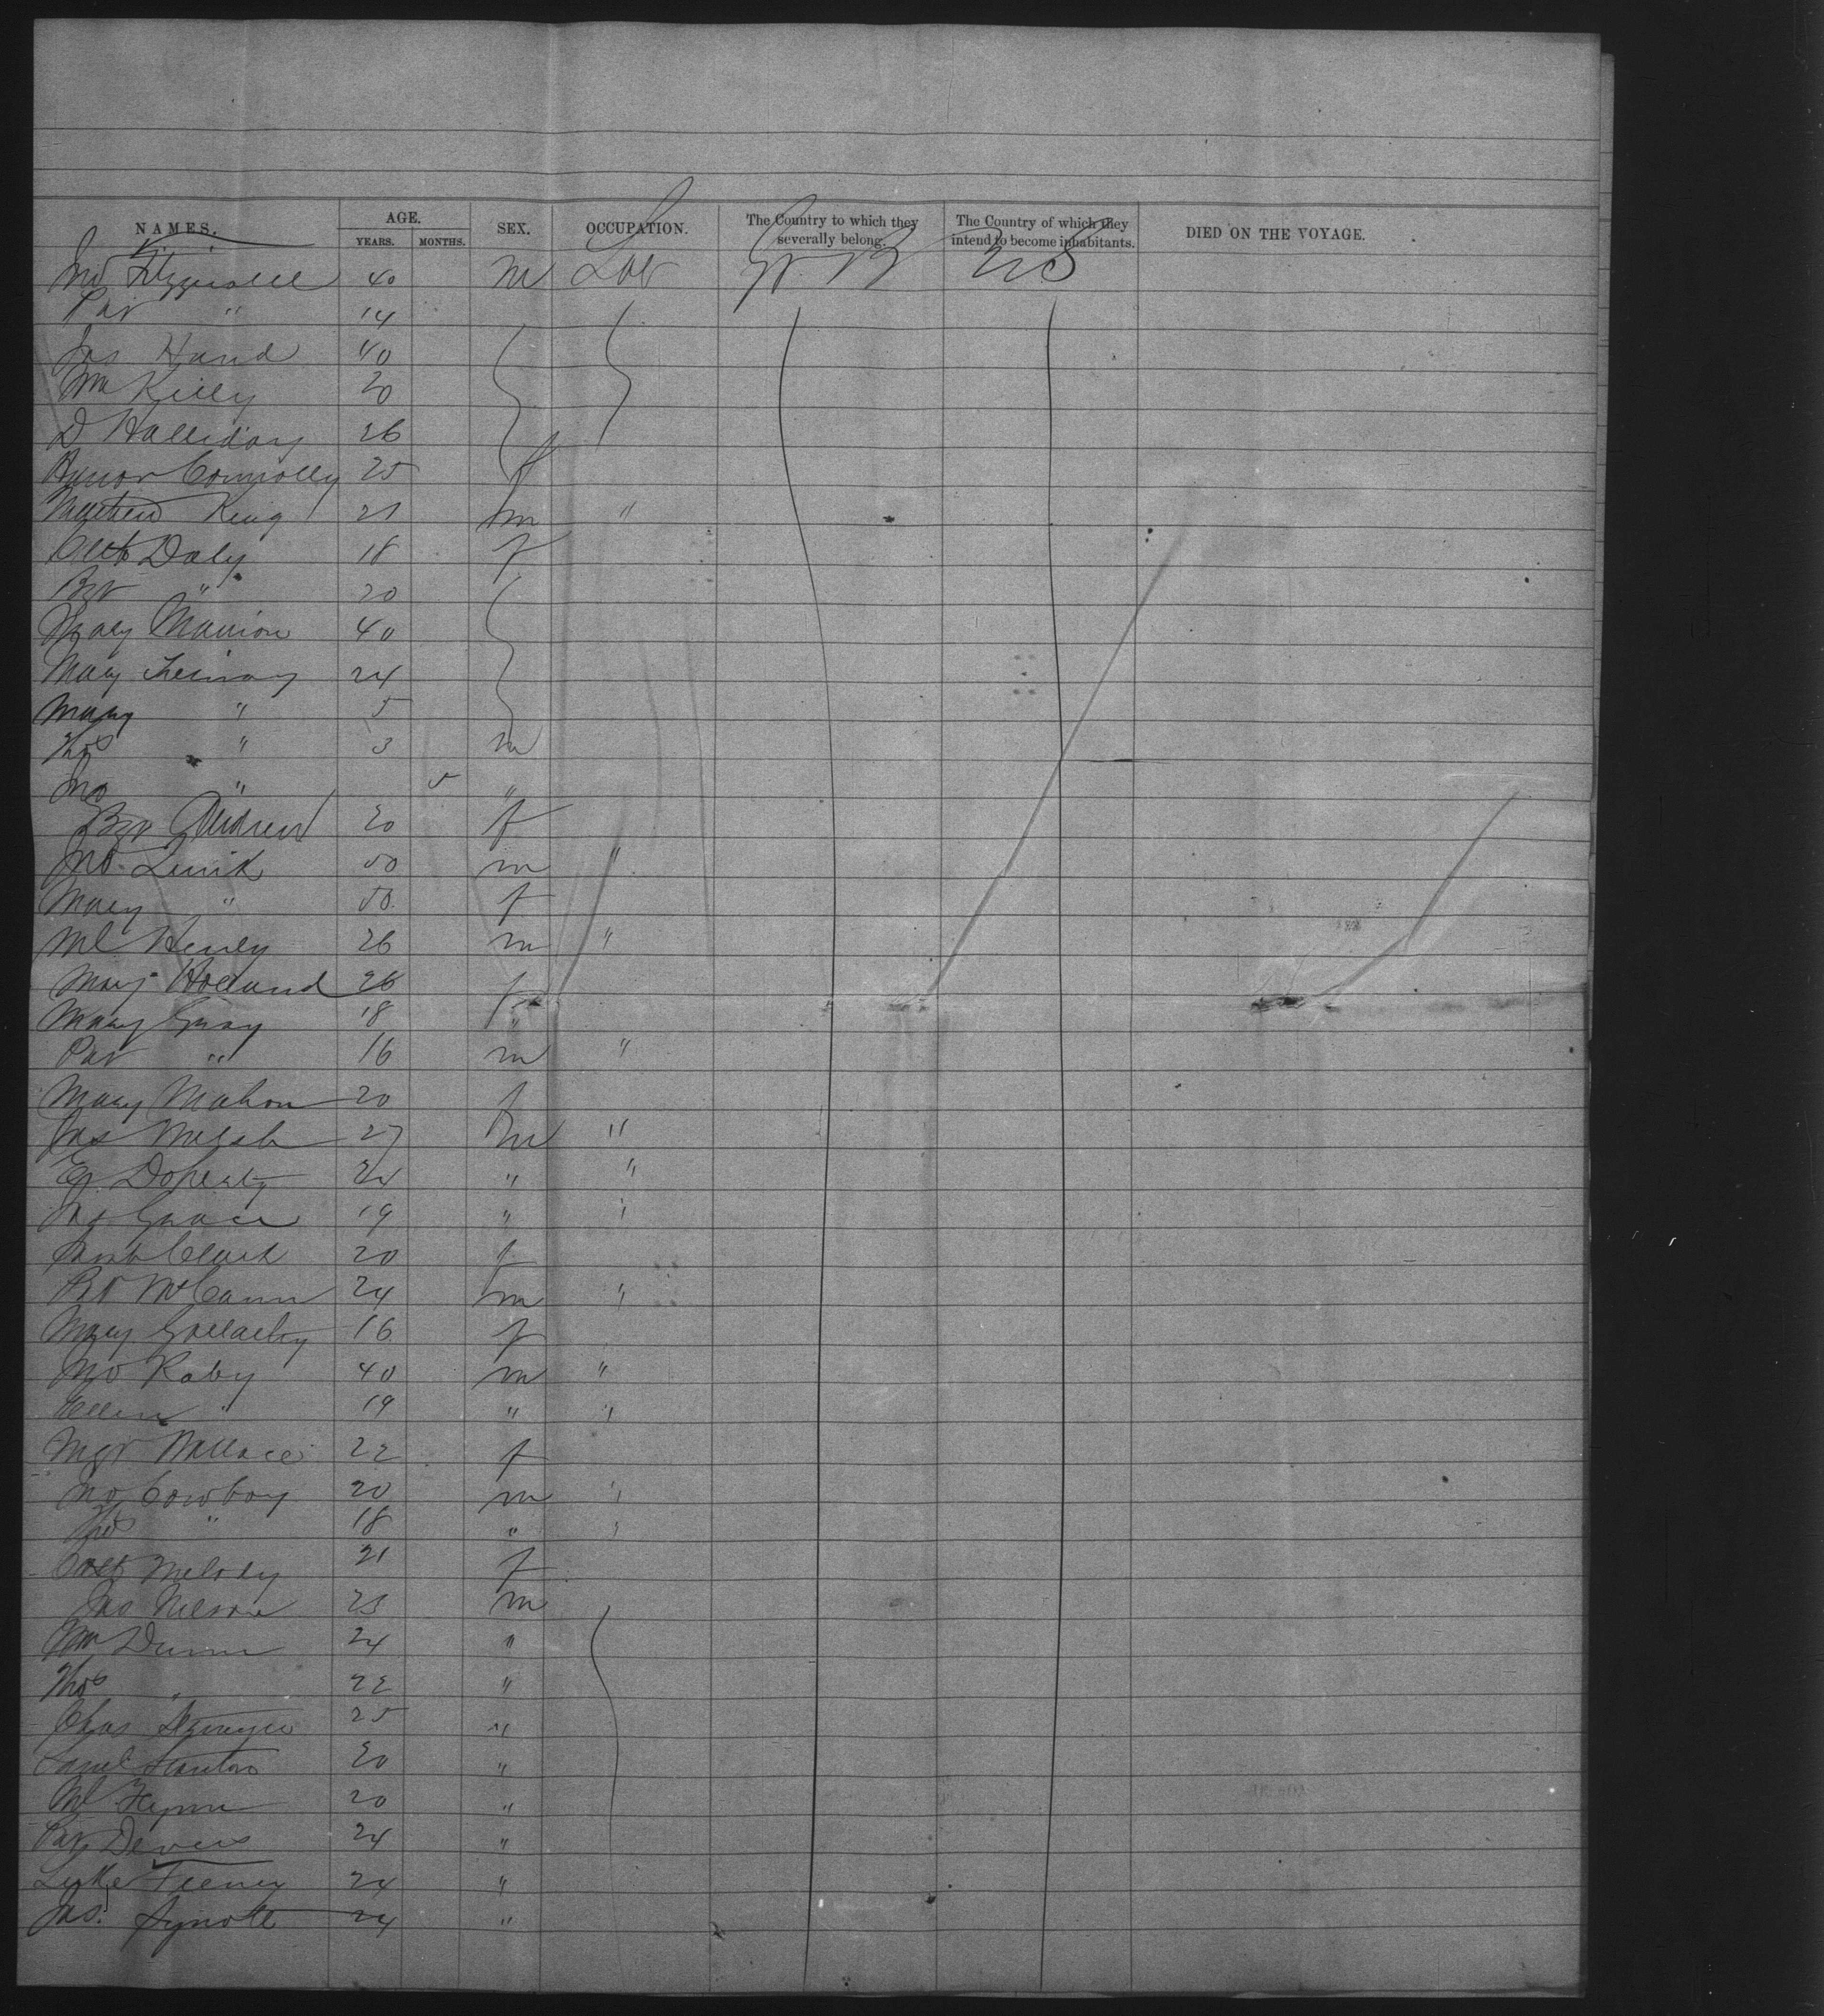 NAMES. AGE. SEX. OCCUPATION. The Country to which they severally belong. The Country of which they intend to become inhabitants. DIED ON THE VOYAGE.
YEARS. MONTHS.
Jno 40 m Lab Gr. B U S
Pat " 14
Jas Hand 40
Wm Kelly 20
D Halliday 26
Honor Connolly 25 f
Mathew King 21 m "
Cath Daly 18 f
Bgt " 20
Mary Mannion 40
Mary 24
Mary " 5
Thos " 3 m
Jno " 5 "
Bgt Andrew 20 f
Jno 50 m "
Mary " 50 f
Ml Henly 26 m "
Mary Holland 26 f
Mary Gray 18 "
Pat " 16 m "
Mary Mahon 20 f
Jas Welsh 27 m "
Doherty 24 " "
Jas Grace 19 " "
Clark 20 f
McCann 24 m "
Mary 16 f
Jno Raby 40 m "
Ellen " 19 " "
Mgt Wallace 22 f
Jno Cowboy 20 m "
Thos " 18 " "
Cath Melody 21 f
Jas Nelson 23 m
Wm Dunn 24 "
Thos " 22 "
Chas 25 "
Saml Stanton 20 "
Ml Flynn 20 "
Pat Devers 24 "
Luke Feeney 24 "
Jas. Synott 24 "